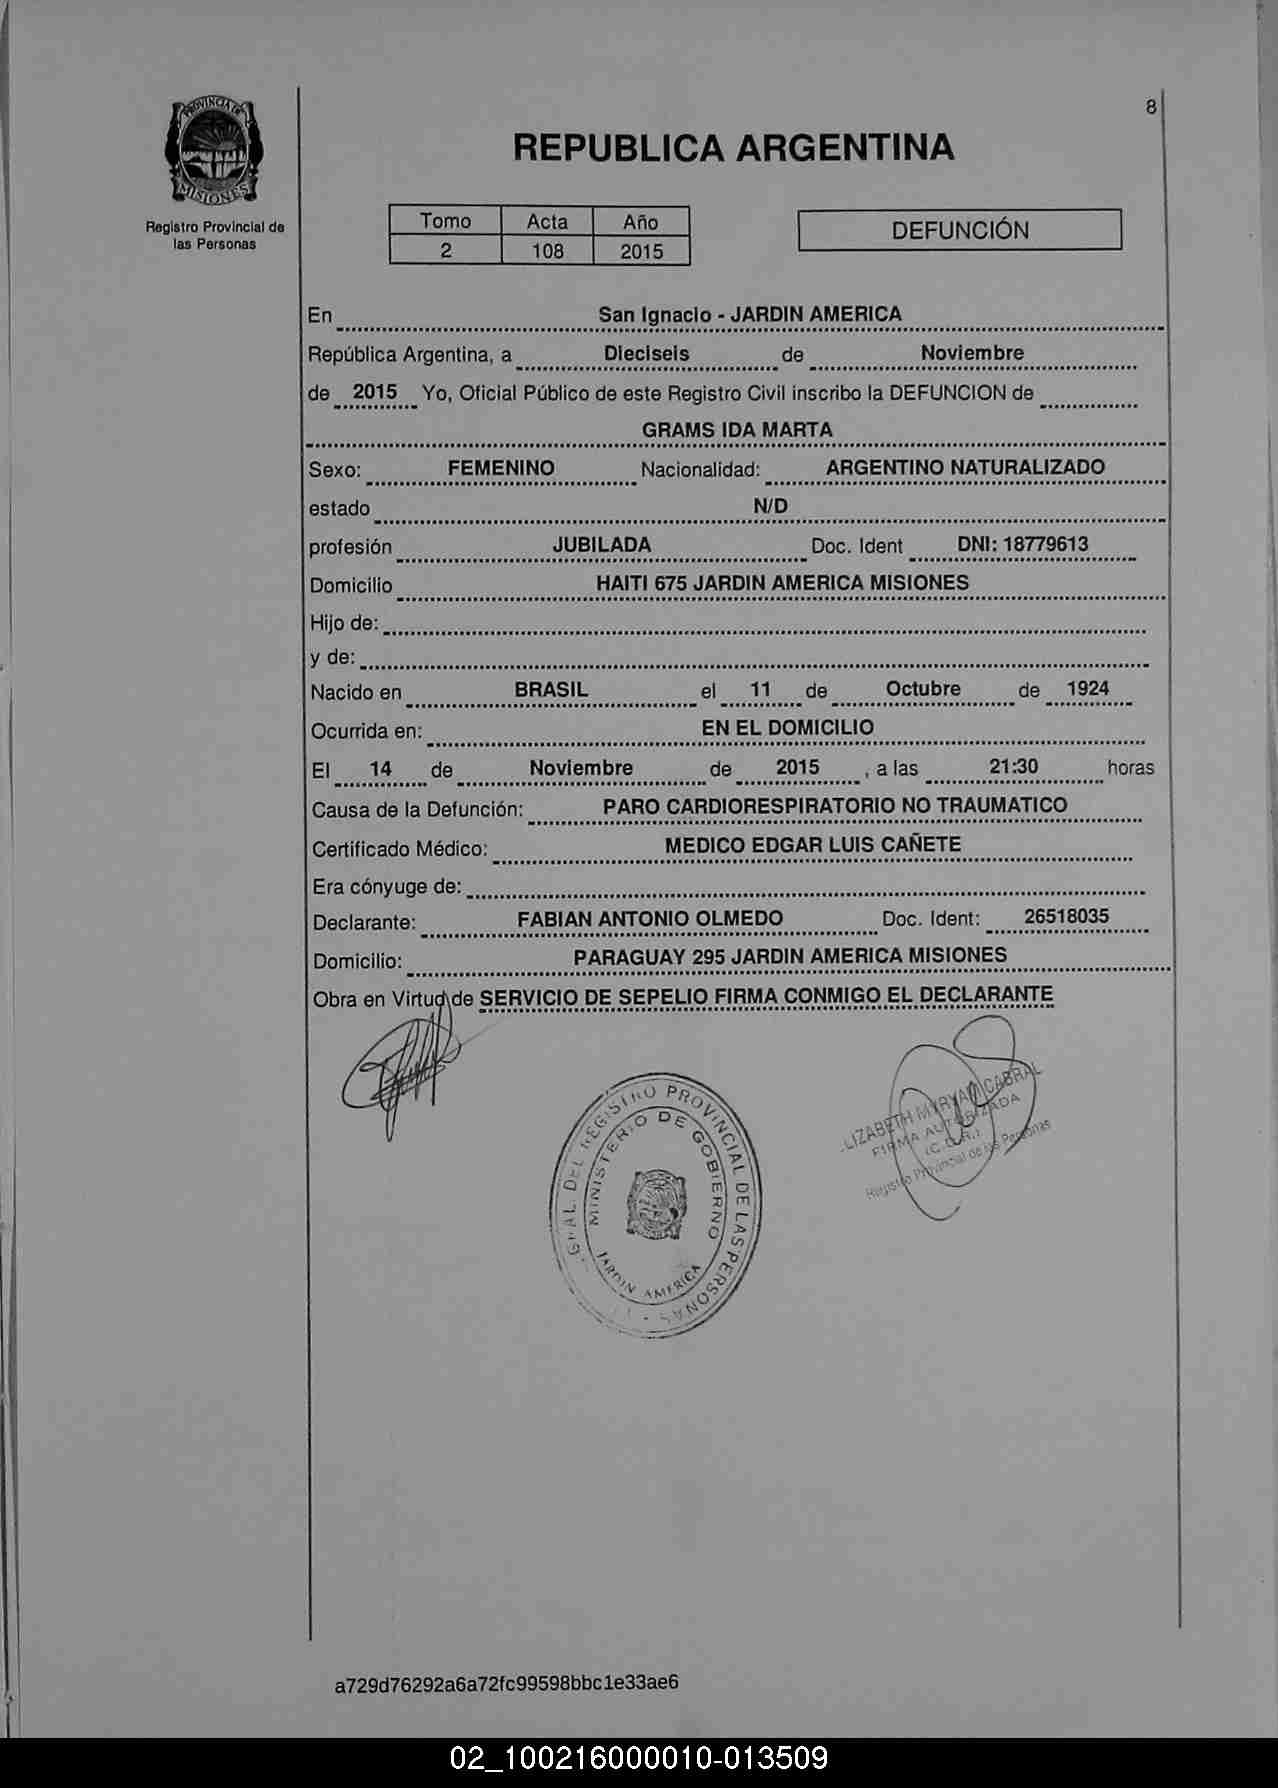 8
PROVINCIA DE
MISIONES
Registro Provincial de
las Personas
REPUBLICA ARGENTINA
Tomo Acta Año
2 108 2015
DEFUNCIÓN
En San Ignacio - JARDIN AMERICA
República Argentina, a Dieciseis de Noviembre
de 2015 Yo, Oficial Público de este Registro Civil inscribo la DEFUNCION de
GRAMS IDA MARTA
Sexo: FEMENINO Nacionalidad: ARGENTINO NATURALIZADO
estado N/D
profesión JUBILADA Doc. Ident DNI: 18779613
Domicilio HAITI 675 JARDIN AMERICA MISIONES
Hijo de:
y de:
Nacido en BRASIL el 11 de Octubre de 1924
Ocurrida en: EN EL DOMICILIO
El 14 de Noviembre de 2015 , a las 21:30 horas
Causa de la Defunción: PARO CARDIORESPIRATORIO NO TRAUMATICO
Certificado Médico: MEDICO EDGAR LUIS CAÑETE
Era cónyuge de:
Declarante: FABIAN ANTONIO OLMEDO Doc. Ident: 26518035
Domicilio: PARAGUAY 295 JARDIN AMERICA MISIONES
Obra en Virtud de SERVICIO DE SEPELIO FIRMA CONMIGO EL DECLARANTE
GRAL. DEL REGISTRO PROVINCIAL DE LAS PERSONAS
MINISTERIO DE GOBIERNO
JARDIN AMERICA
LIZABETH MYRYAM CABRAL
FIRMA AUTORIZADA
Registro Provincial de las Personas
a729d76292a6a72fc99598bbc1e33ae6
02_100216000010-013509